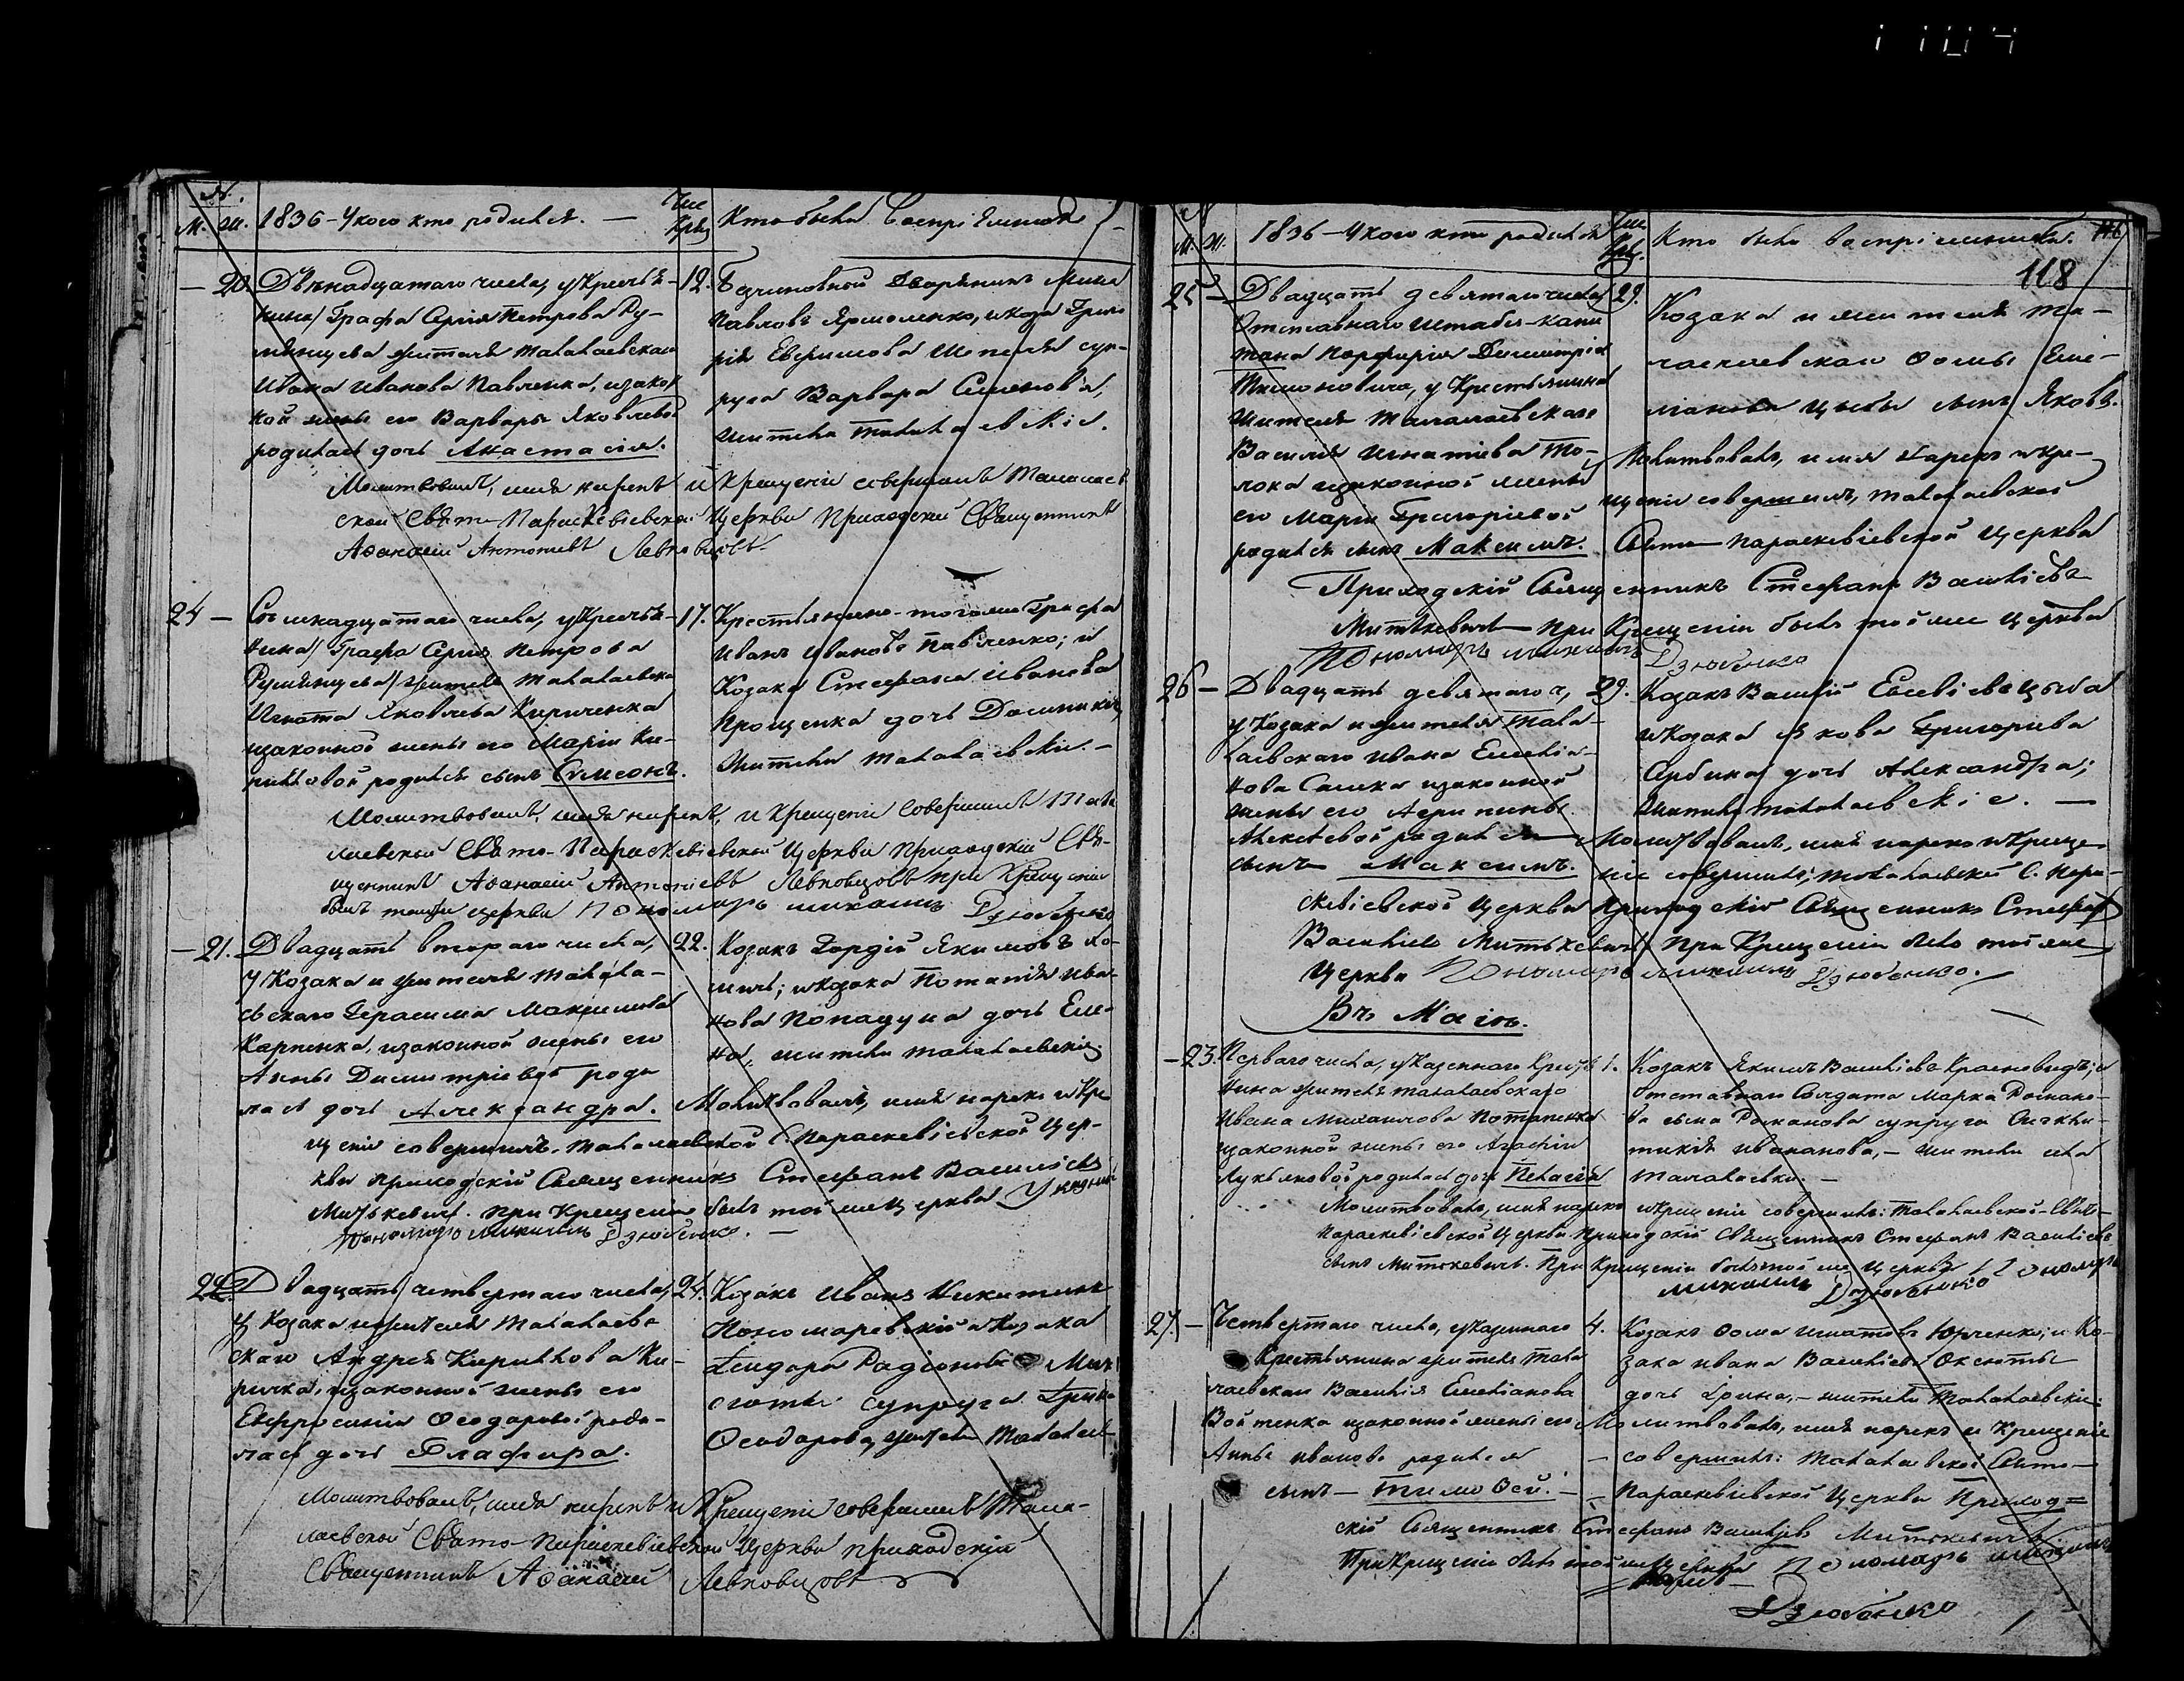 1104
№
М. Ж. 1836 - У кого кто родился. — Чис. Крещ. Кто былъ воспріемникомъ
— 20. Двѣнадцатаго числа, у Крестья-
нина Графа Сергія Петрова Ру-
мянцева жителя Талалаевскаго
Ивана Иванова Павленка, и закон-
ной жены его Варвары Яковлевой
родилась дочь Анастасія.
12. Безчиновной Дворянинъ Михаилъ
Павловъ Ярмоленко, и Козака Григо-
рія Евфимова Шепеля суп-
руга Варвара Семенова,
жители Талалаевскіе.
Молитвовалъ, имя нарекъ и Крещеніе совершилъ Талалаев-
ской Свято-Параскевіевской Церкви Приходскій Священникъ
Афанасій Антоніевъ Левковцовъ
24 — Семнадцатаго числа, у Крестья-
нина Графа Сергія Петрова
Румянцева жителя Талалаевска
Игната Яковлева Кириченка
и законной жены его Маріи Ки-
риловой родился сынъ Симеонъ.
17. Крестьянинъ того же Графа
Иванъ Ивановъ Павленко; и
Козака Стефана Иванова
Прощенка дочь Домникія,
жители Талалаевскіе. —
Молитвовалъ, имя нарекъ, и Крещеніе совершилъ Тала-
лаевской Свято-Параскевіевской Церкви Приходскій Свя-
щенникъ Афанасій Антоніевъ Левковцовъ при Крещеніи
былъ той же церкви Пономарь Михаилъ Дзюбенко
— 21. Двадцать втораго числа,
у Козака и жителя Талала-
евскаго Герасима Максимова
Карпенка, и законной жены его
Анны Димитріевой роди-
лась дочь Александра.
22. Козакъ Гордій Якимовъ Ко-
; и Козака Потапія Ива-
нова Попадуна дочь Еле-
на; жители Талалаевскіе.
Молитвовалъ, имя нарекъ и Кре-
щеніе совершилъ, Талалаевской С. Параскевіевской Цер-
кви Приходскій Священникъ Стефанъ Василіевъ
Митькевичъ. При Крещеніи былъ той же Церкви
Пономарь Михаилъ Дзюбенко. —
22. Двадцать четвертаго числа,
у Козака и жителя Талалаев-
скаго Андрея Кирилова Ки-
ричка, и законной жены его
Евфросиніи Феодоровой роди-
лась дочь Глафира.
24. Козакъ Иванъ Никитинъ
Пономаревскій и Козака
Родіонова
супруга
Феодорова, жители Талалаев
Молитвовалъ, имя нарекъ и Крещеніе совершилъ Тала-
лаевской Свято-Параскевіевской Церкви Приходскій
Священникъ Афанасій Левковцовъ
М. Ж. 1836 - У кого кто родился Чис. Крещ. Кто былъ воспріемникомъ.
118
25 — Двадцать девятаго числа
Отставнаго Штабсъ-капи-
тана Порфирія Димитрія
, у Крестьянина
жителя Талалаевскаго
Василія Игнатіева То-
лока и законной жены
его Маріи Григоріевой
родился сынъ Максимъ.
29. Козака и жителя Та-
лалаевскаго Фомы Еме-
ліанова Цыбы сынъ Яковъ.
Молитвовалъ, имя нарекъ и Кре-
щеніе совершилъ, Талалаевской
Свято-Параскевіевской Церкви
Приходскій Священникъ Стефанъ Василіевъ
Митькевичъ при Крещеніи былъ той же Церкви
Пономарь Михаилъ Дзюбенко
26 — Двадцать девятаго ч,
у Козака и жителя Тала-
лаевскаго Ивана Емеліа-
нова и законной
жены его Агрипины
Алексѣевой родился
сынъ Максимъ.
29. Козакъ Василій Евсевіевъ Цыба
и Козака Якова Григорьева
Сербина дочь Александра;
жители Талалаевскіе. —
Молитвовалъ, имя нарекъ и Креще-
ніе совершилъ; Талалаевской С. Пара-
скевіевской Церкви Приходскій Священникъ Стефанъ
Василіевъ Митькевичъ При Крещеніи былъ той же
Церкви Пономарь Михаилъ Дзюбенко.
Въ Маіѣ.
— 23. Перваго числа, у Казеннаго Крестья-
нина жителя Талалаевскаго
Ивана Михаилова Потапенка
и законной жены его Агафіи
Лукьяновой родилась дочь Пелагія
1. Козакъ Якимъ Василіевъ Красновидъ; и
отставнаго Солдата Марка Романо-
ва сына Романова супруга
Иванова, — жители села
Талалаевки. —
Молитвовалъ, имя нарекъ и Крещеніе совершилъ: Талалаевской-Свято-
Параскевіевской Церкви Приходскій Священникъ Стефанъ Василіевъ
сынъ Митькевичъ. При Крещеніи былъ той же Церкви Пономарь
Михаилъ Дзюбенко
27. — Четвертаго числа, у Казеннаго
Крестьянина жителя Тала-
лаевскаго Василія Емеліанова
Войтенка и законной жены его
Анны Ивановой родился
сынъ — Тимофей. —
4. Козакъ Фома Игнатовъ Юрченко; и Ко-
зака Ивана Василіева Оксюты
дочь Ирина, — жители Талалаевскіе.
Молитвовалъ, имя нарекъ и Крещеніе
совершилъ: Талалаевской Свято-
Параскевіевской Церкви Приход-
скій Священникъ Стефанъ Василіевъ Митькевичъ
При Крещеніи былъ той же Церкви Пономарь Михаилъ
Дзюбенко